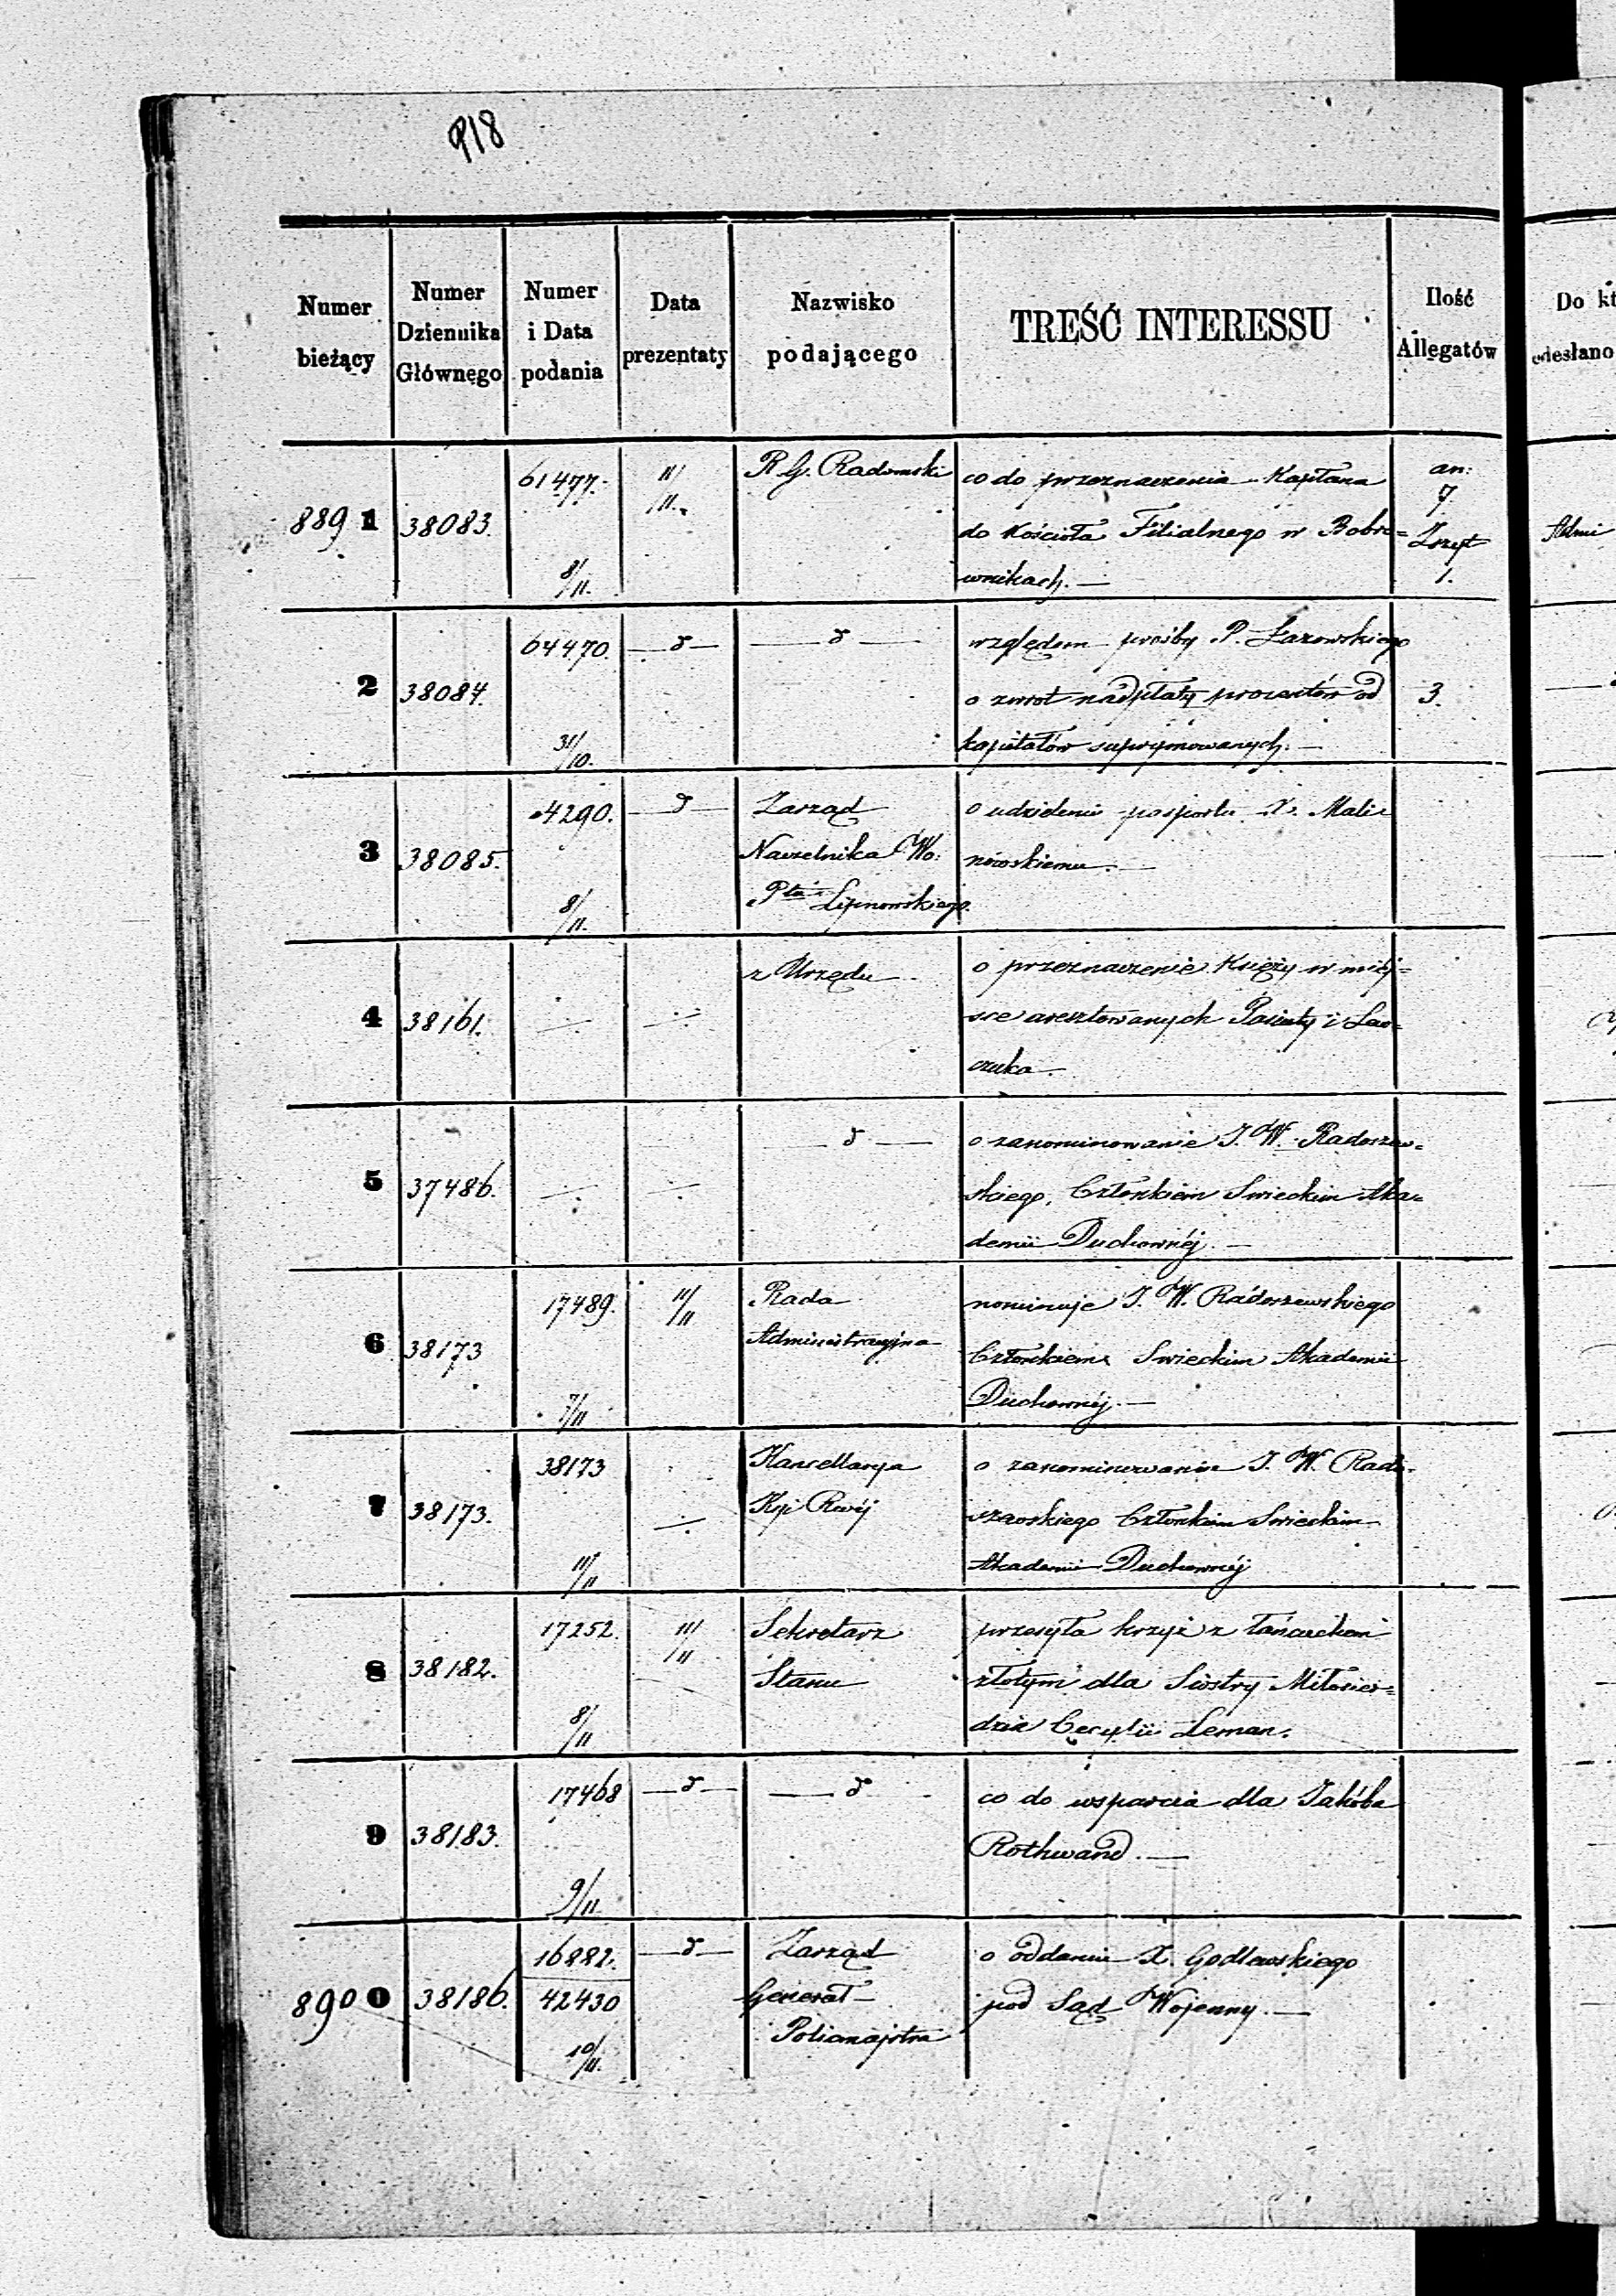 918
Numer bieżący
Numer Dziennika Głównego
Numer i Data podania
Data prezentaty
Nazwisko podającego
TREŚĆ INTERESSU
Ilość Allegatów
Do kt
odesłano
8891 38083. 61477. 8/11. 11/11. R. G. Radomski co do przeznaczenia Kapłana
do Kościoła Filialnego w Bobro=
wnikach. —
an: 7. Zszyt 1.
Admi
2 38084. 64470. 31/10. —d— —d— względem prośby P. Łazowskiego
o zwrot nadpłaty procentów od
kapitałów suprymowanych. —
3.
3 38085. 4290. 8/11. —d— Zarząd
Naczelnika Wo:
Ptu Lipnowskiego.
o udzielenie pasportu X. Mali
nowskiemu. —
4 38161. z Urzędu
o przeznaczenie Księży w miéj=
sce aresztowanych i Law=
czuka.
5 37486. —d— o zanominowanie J. W. Radoszew=
skiego, Członkiem Swieckim Aka=
demii Duchownéj. —
6 38173 17489. 7/11 11/11 Rada
Administracyjna
nominuje J. W. Radoszewskiego
Członkiem Swieckim Akademii
Duchownéj. —
7 38173. 38173 11/11 Kancellarya
o zanominowanie J. W. Rado=
szewskiego Członkiem Swieckim
Akademii Duchownéj
8 38182. 17252. 8/11 11/11 Sekretarz
Stanu
przesyła krzyż z łańcuchem
złotym dla Siostry Miłosier=
dzia Cecylii Leman.
9 38183. 17468 9/11 —d— —d— co do wsparcia dla Jakóba
Rothwand. —
8900 38186. 16882. 42430 10/11. —d— Zarząd
Generał
Policmajstra
o oddanie X. Godlewskiego
pod Sąd Wojenny. —